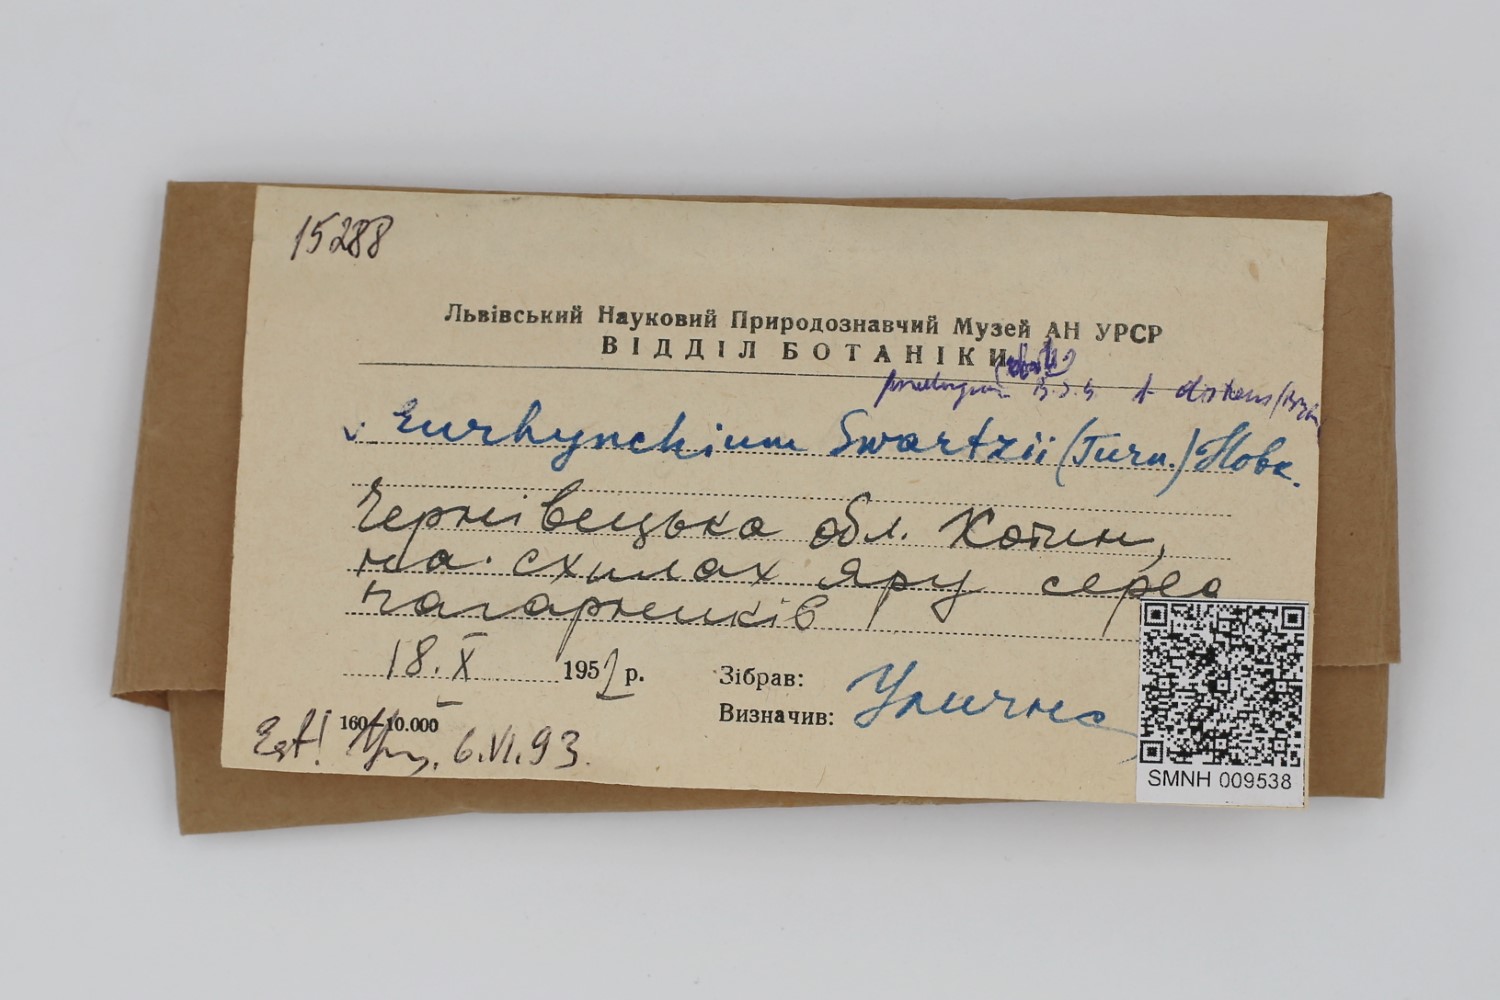 15288
Львівський Науковий Природознавчий Музей АН УРСР
ВІДДІЛ БОТАНІКИ
Eurhynchium Swartzii (Turn.) Hobk.
Чернівецька обл. Хотин,
на схилах яру серед
чагарників
18.X 1952 р.
Зібрав:
Визначив: Улична
160—10.000
Est! 6.VI.93.
SMNH 009538